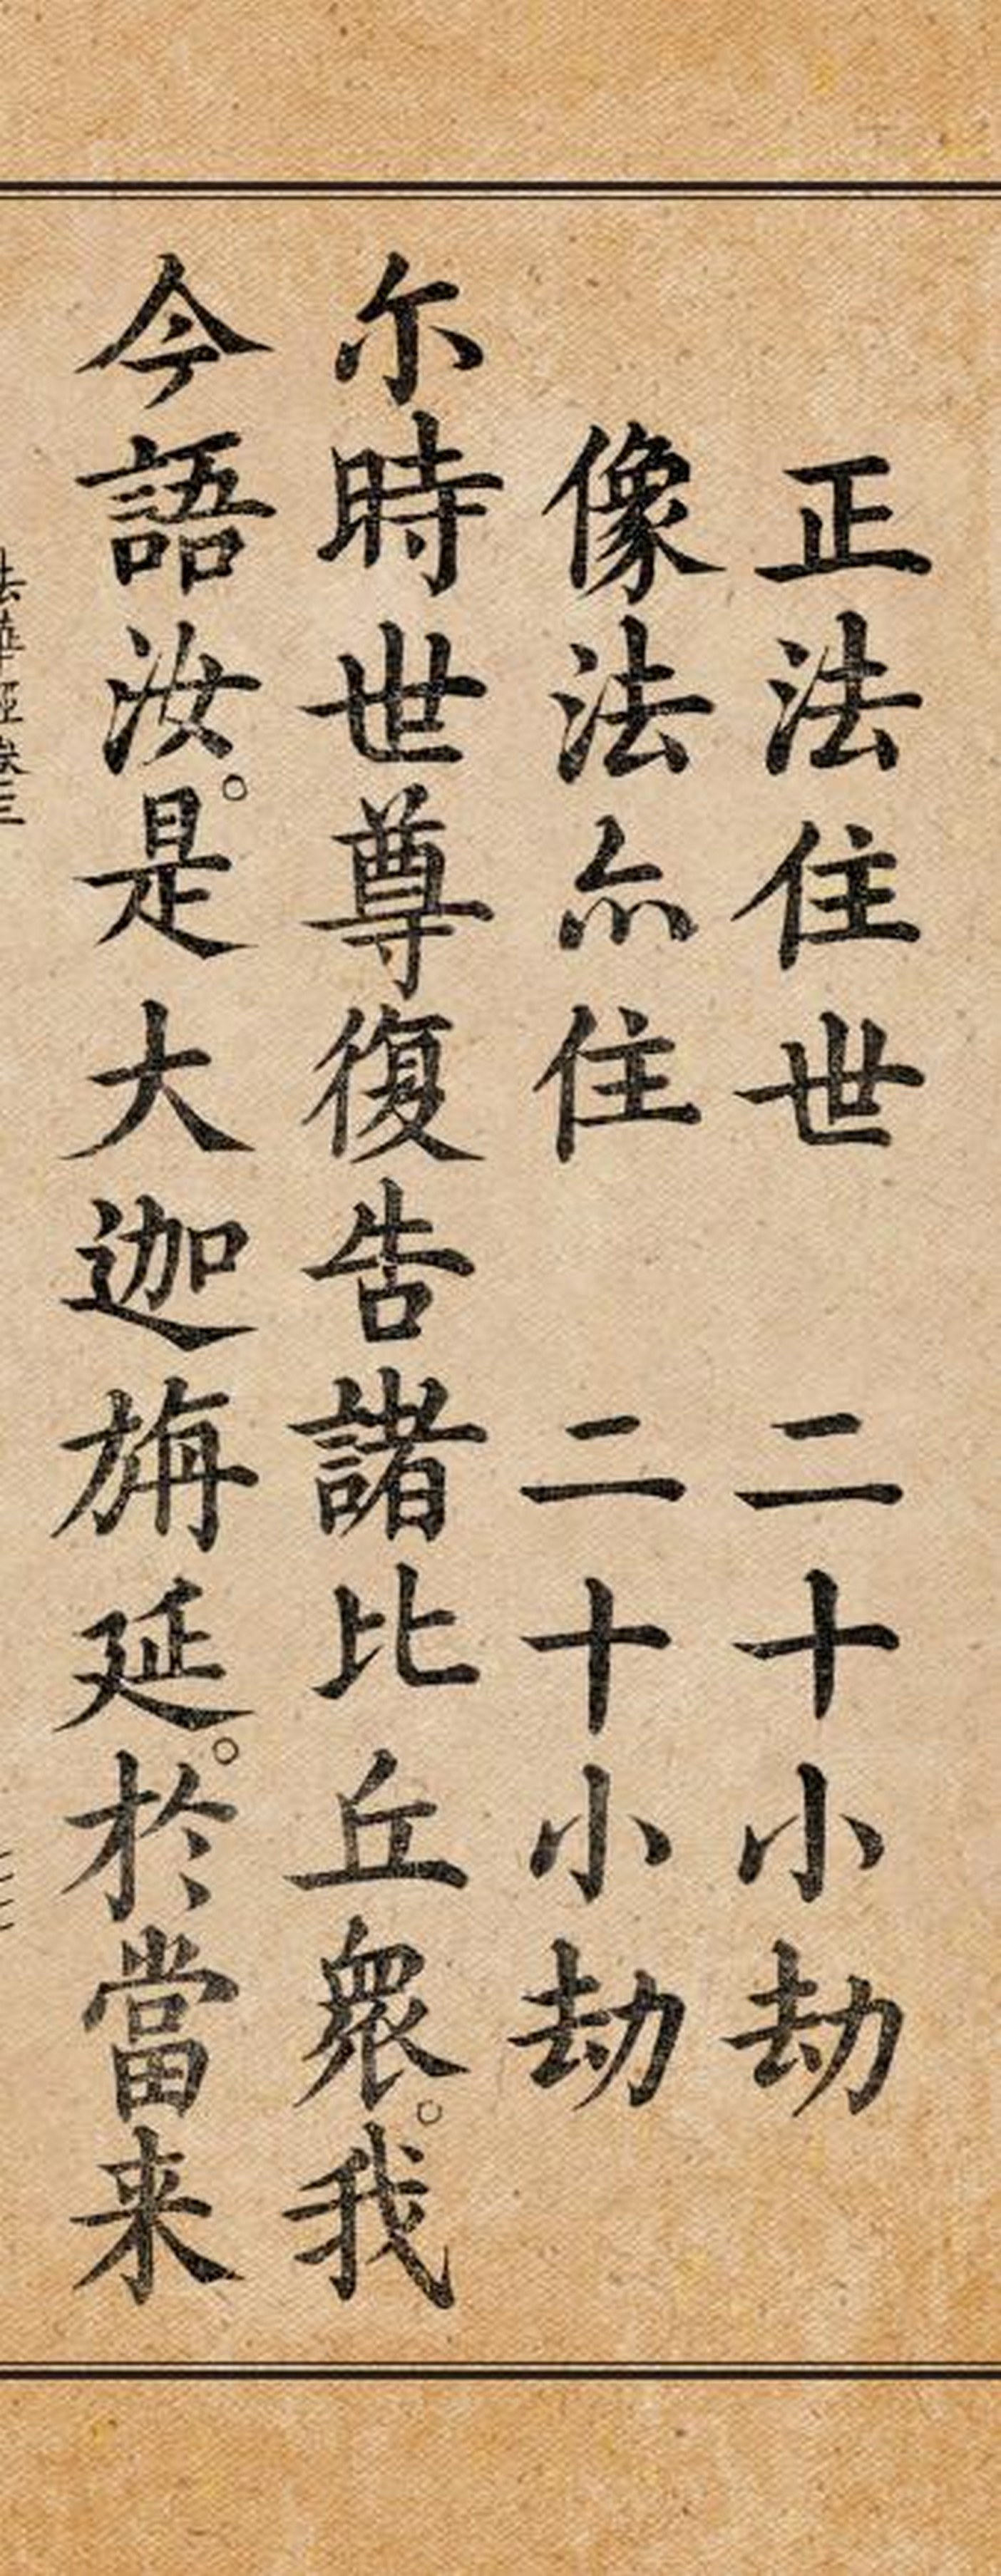 正法住世　二十小劫
像法亦住　二十小劫
尔時世尊復告諸比丘眾。我
今語汝。是大迦旃延。於當来
法華經卷三